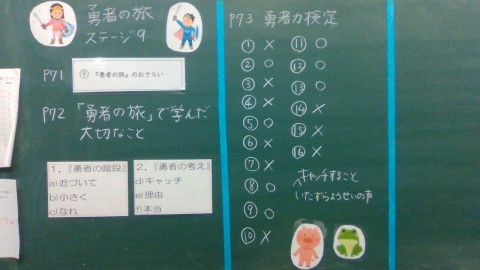 勇者の旅
ステージ9
P71
⑨『勇者の旅』のおさらい
P72 「勇者の旅」で学んだ
大切なこと
1.『勇者の階段』
a)近づいて
b)小さく
c)なれ
2.『勇者の考え』
d)キャッチ
e)理由
f)本当
P73 勇者力検定
① ×
② ○
③ ×
④ ×
⑤ ○
⑥ ×
⑦ ×
⑧ ○
⑨ ○
⑩ ×
⑪ ○
⑫ ○
⑬ ○
⑭ ×
⑮ ○
⑯ ×
キャッチすること
いたずらようせいの声